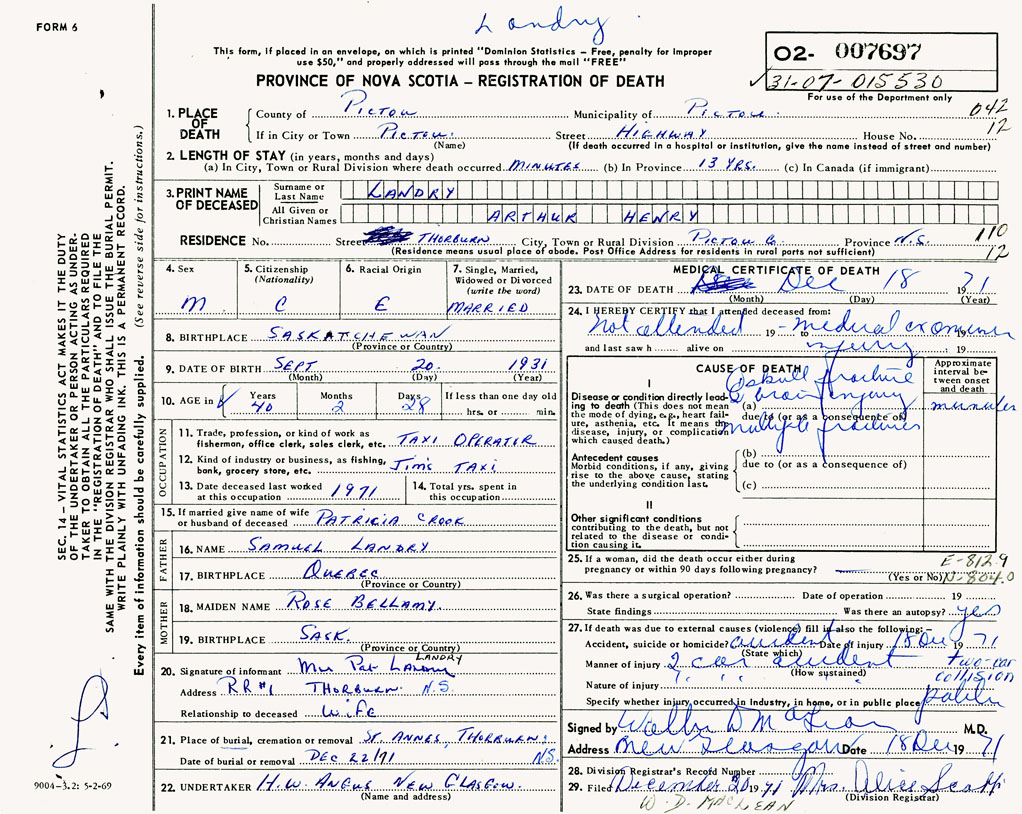 Landry
FORM 6
This form, if placed in an envelope, on which is printed "Dominion Statistics – Free, penalty for improper
use $50," and properly addressed will pass through the mail "FREE"
PROVINCE OF NOVA SCOTIA – REGISTRATION OF DEATH
02- 007697
✓31-07-015530
For use of the Department only
1. PLACE OF DEATH
County of Pictou Municipality of Pictou 042
If in City or Town Pictou. Street HIGHWAY House No. 12
(Name) (If death occurred in a hospital or institution, give the name instead of street and number)
2. LENGTH OF STAY (in years, months and days)
(a) In City, Town or Rural Division where death occurred MINUTES (b) In Province 13 YRS. (c) In Canada (if immigrant)
3. PRINT NAME OF DECEASED
Surname or Last Name LANDRY
All Given or Christian Names ARTHUR HENRY
RESIDENCE No. Street THORBURN City, Town or Rural Division PICTOU Co. Province N.S. 110
(Residence means usual place of abode. Post Office Address for residents in rural parts not sufficient) 12
4. Sex M
5. Citizenship (Nationality) C
6. Racial Origin E
7. Single, Married, Widowed or Divorced (write the word) MARRIED
8. BIRTHPLACE SASKATCHEWAN
(Province or Country)
9. DATE OF BIRTH SEPT 20. 1931
(Month) (Day) (Year)
10. AGE in Years 40 Months 2 Days 28 If less than one day old hrs. or min.
OCCUPATION
11. Trade, profession, or kind of work as fisherman, office clerk, sales clerk, etc. TAXI OPERATOR
12. Kind of industry or business, as fishing, bank, grocery store, etc. Jim's TAXI
13. Date deceased last worked at this occupation 1971
14. Total yrs. spent in this occupation
15. If married give name of wife or husband of deceased PATRICIA CROOK
FATHER
16. NAME SAMUEL LANDRY
17. BIRTHPLACE QUEBEC
(Province or Country)
MOTHER
18. MAIDEN NAME ROSE BELLAMY.
19. BIRTHPLACE SASK.
(Province or Country)
20. Signature of informant Mrs Pat Landry LANDRY
Address RR #1 THORBURN N.S.
Relationship to deceased WIFE
21. Place of burial, cremation or removal ST. ANNES, THORBURN.
Date of burial or removal DEC 22/71 N.S.
22. UNDERTAKER H.W. ANGUS NEW GLASGOW.
(Name and address)
MEDICAL CERTIFICATE OF DEATH
23. DATE OF DEATH Dec 18 1971
(Month) (Day) (Year)
24. I HEREBY CERTIFY that I attended deceased from:
Not attended 19 - medical examiner 19
and last saw h alive on injury 19
CAUSE OF DEATH
Approximate interval between onset and death
I
Disease or condition directly leading to death (This does not mean the mode of dying, e.g., heart failure, asthenia, etc. It means the disease, injury, or complication which caused death.)
skull fracture
(a) brain injury minutes
due to (or as a consequence of)
multiple fractures
Antecedent causes
Morbid conditions, if any, giving rise to the above cause, stating the underlying condition last.
(b)
due to (or as a consequence of)
(c)
II
Other significant conditions
contributing to the death, but not related to the disease or condition causing it.
25. If a woman, did the death occur either during E-812.9
pregnancy or within 90 days following pregnancy? (Yes or No) N-804.0
26. Was there a surgical operation? Date of operation 19
State findings Was there an autopsy? yes
27. If death was due to external causes (violence) fill in also the following:–
Accident, suicide or homicide? accident Date of injury 18 Dec 1971
(State which)
Manner of injury 2 car accident two-car
(How sustained) collision
Nature of injury " " "
Specify whether injury occurred in industry, in home, or in public place public
Signed by Walter D MacLean M.D.
Address New Glasgow Date 18 Dec 1971
28. Division Registrar's Record Number
29. Filed December 20 1971 Mrs. Alice Scott
(Division Registrar)
W. D. MACLEAN
SEC. 14 – VITAL STATISTICS ACT MAKES IT THE DUTY
OF THE UNDERTAKER OR PERSON ACTING AS UNDER-
TAKER TO OBTAIN ALL THE PARTICULARS REQUIRED
IN THE "REGISTRATION OF DEATH" AND TO FILE THE
SAME WITH THE DIVISION REGISTRAR WHO SHALL ISSUE THE BURIAL PERMIT.
WRITE PLAINLY WITH UNFADING INK. THIS IS A PERMANENT RECORD.
Every item of information should be carefully supplied. (See reverse side for instructions.)
9004-3.2: 5-2-69